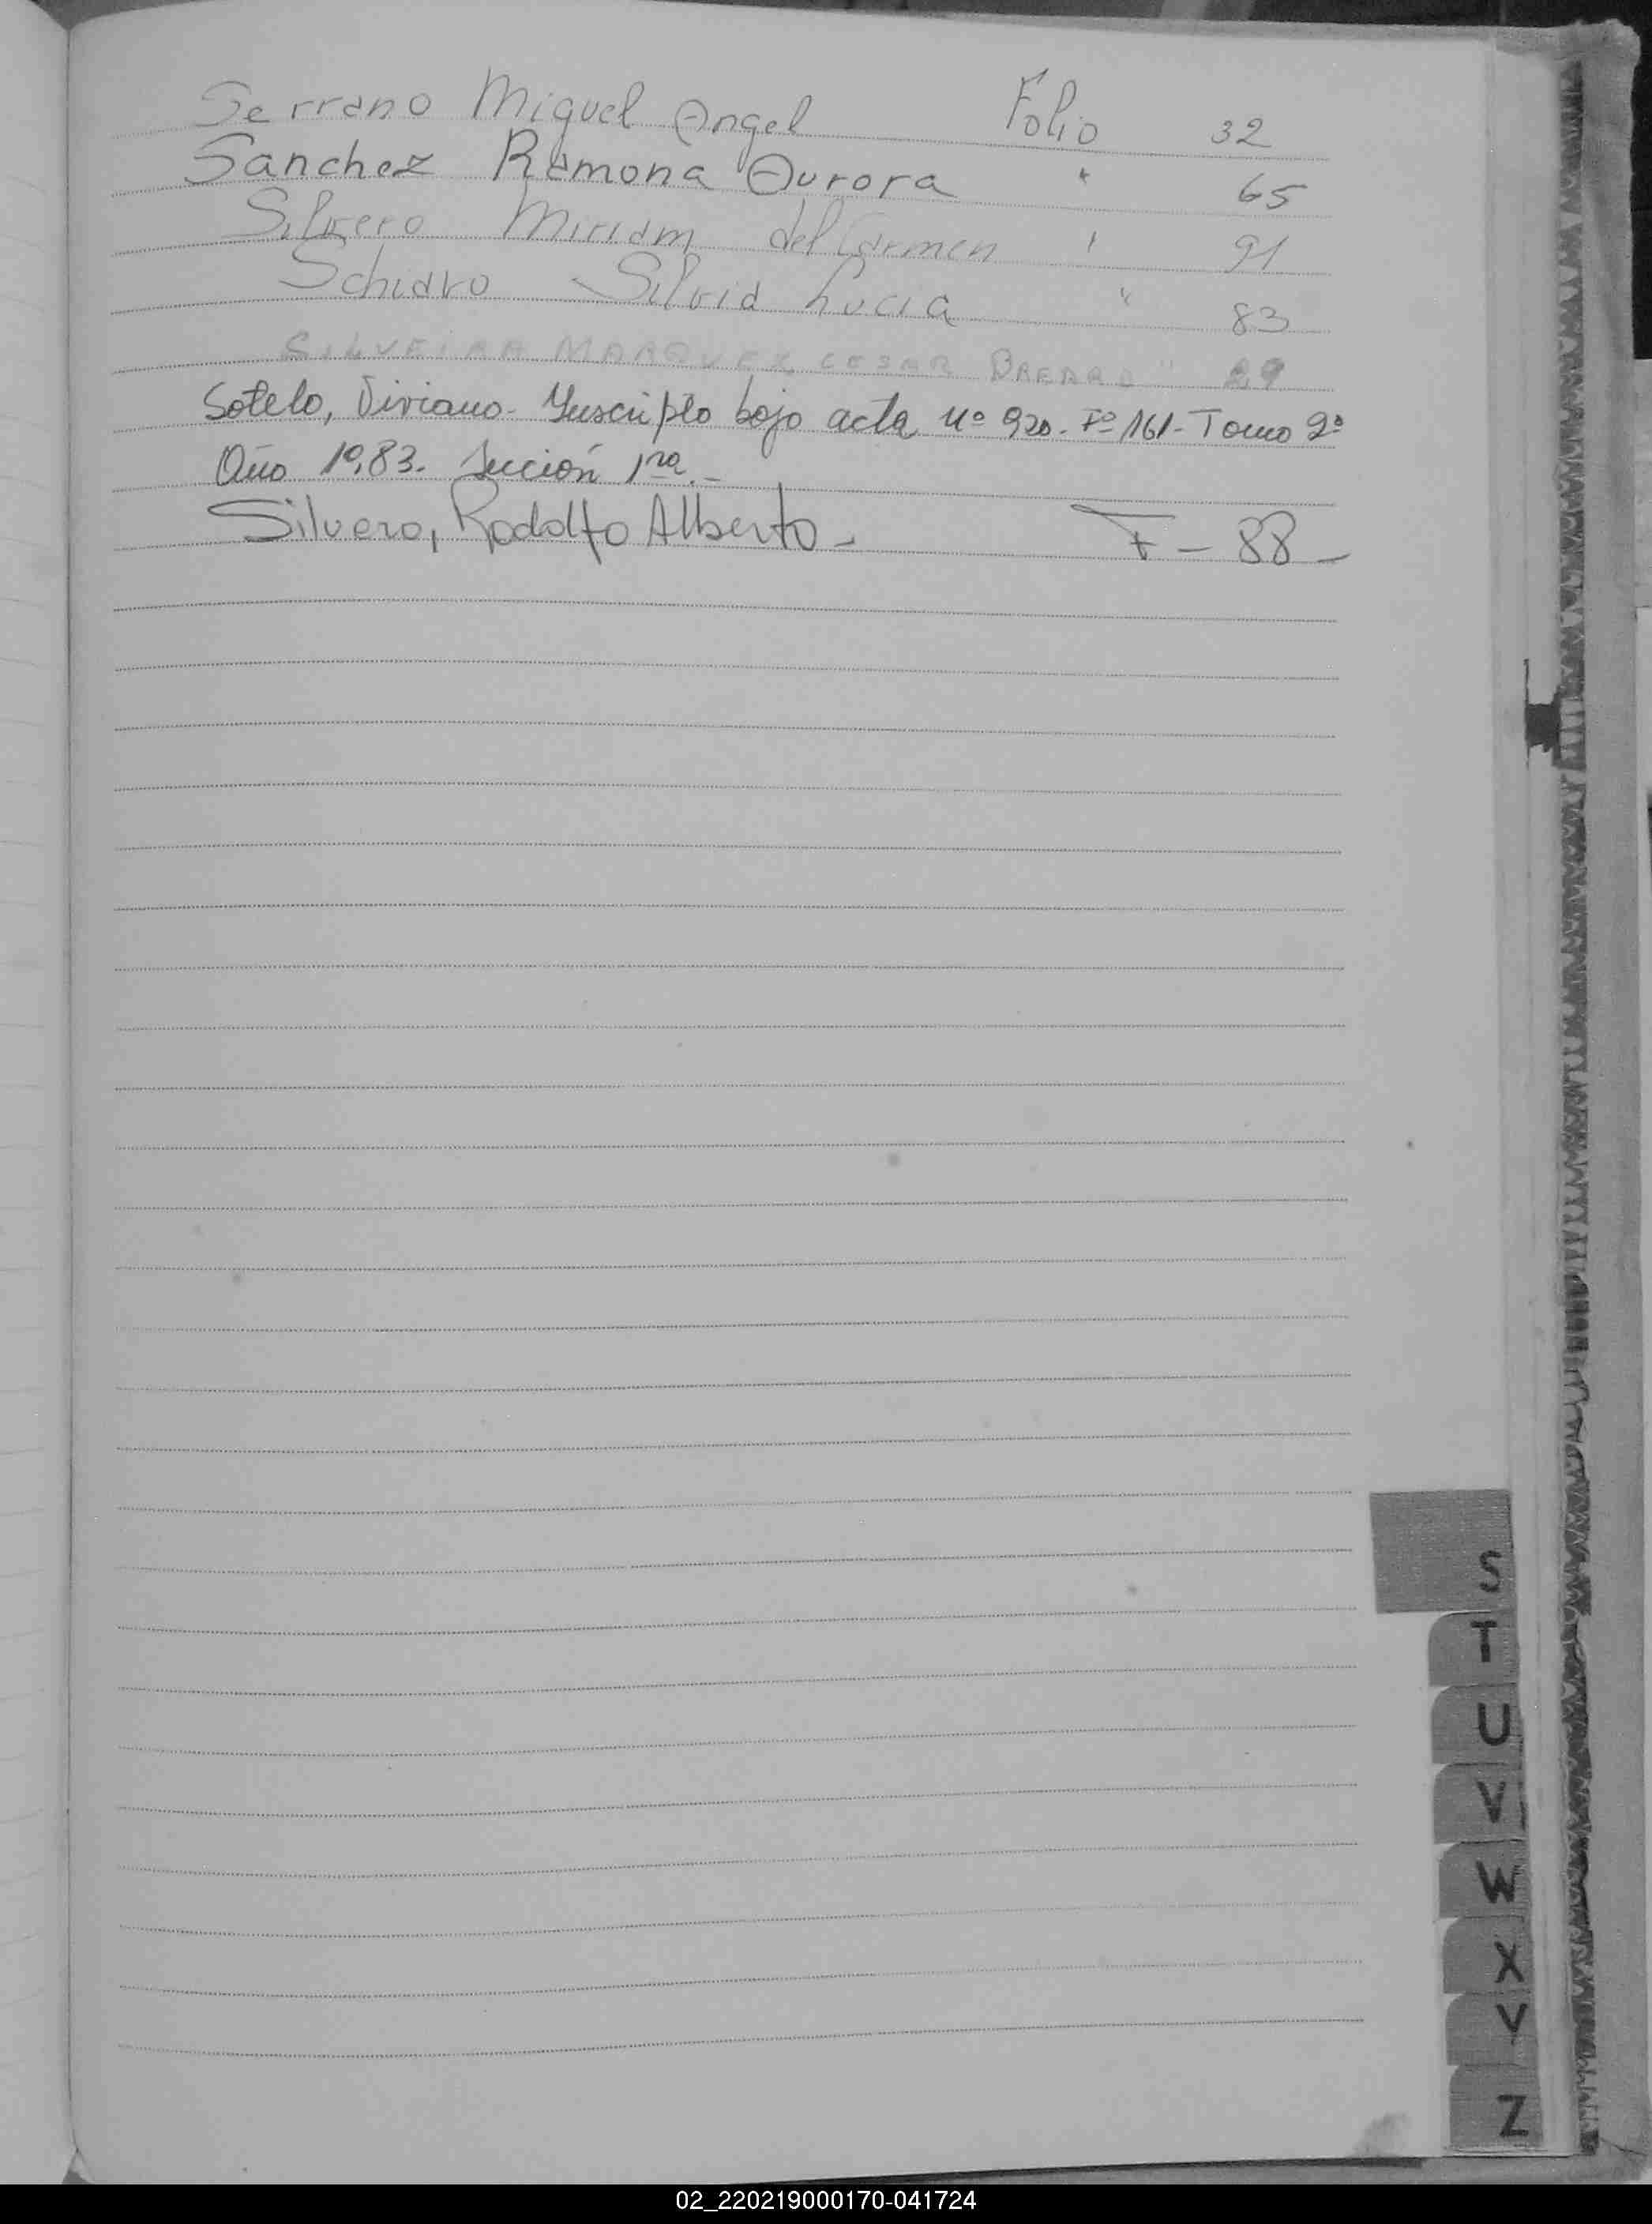 Serrano Miguel Angel Folio 32
Sanchez Ramona Aurora " 65
Silvero Miriam del Carmen " 91
Schiavo Silvia Lucia " 83
SILVEIRA MARQUEZ CESAR " 29
Sotelo, Viviano - Inscripto bajo acta nº 920 - Fº 161 - Tomo 2º
Año 1983. Sección 1ra.-
Silvero, Rodolfo Alberto - F - 88 -
S
T
U
V
W
X
Y
Z
02_220219000170-041724